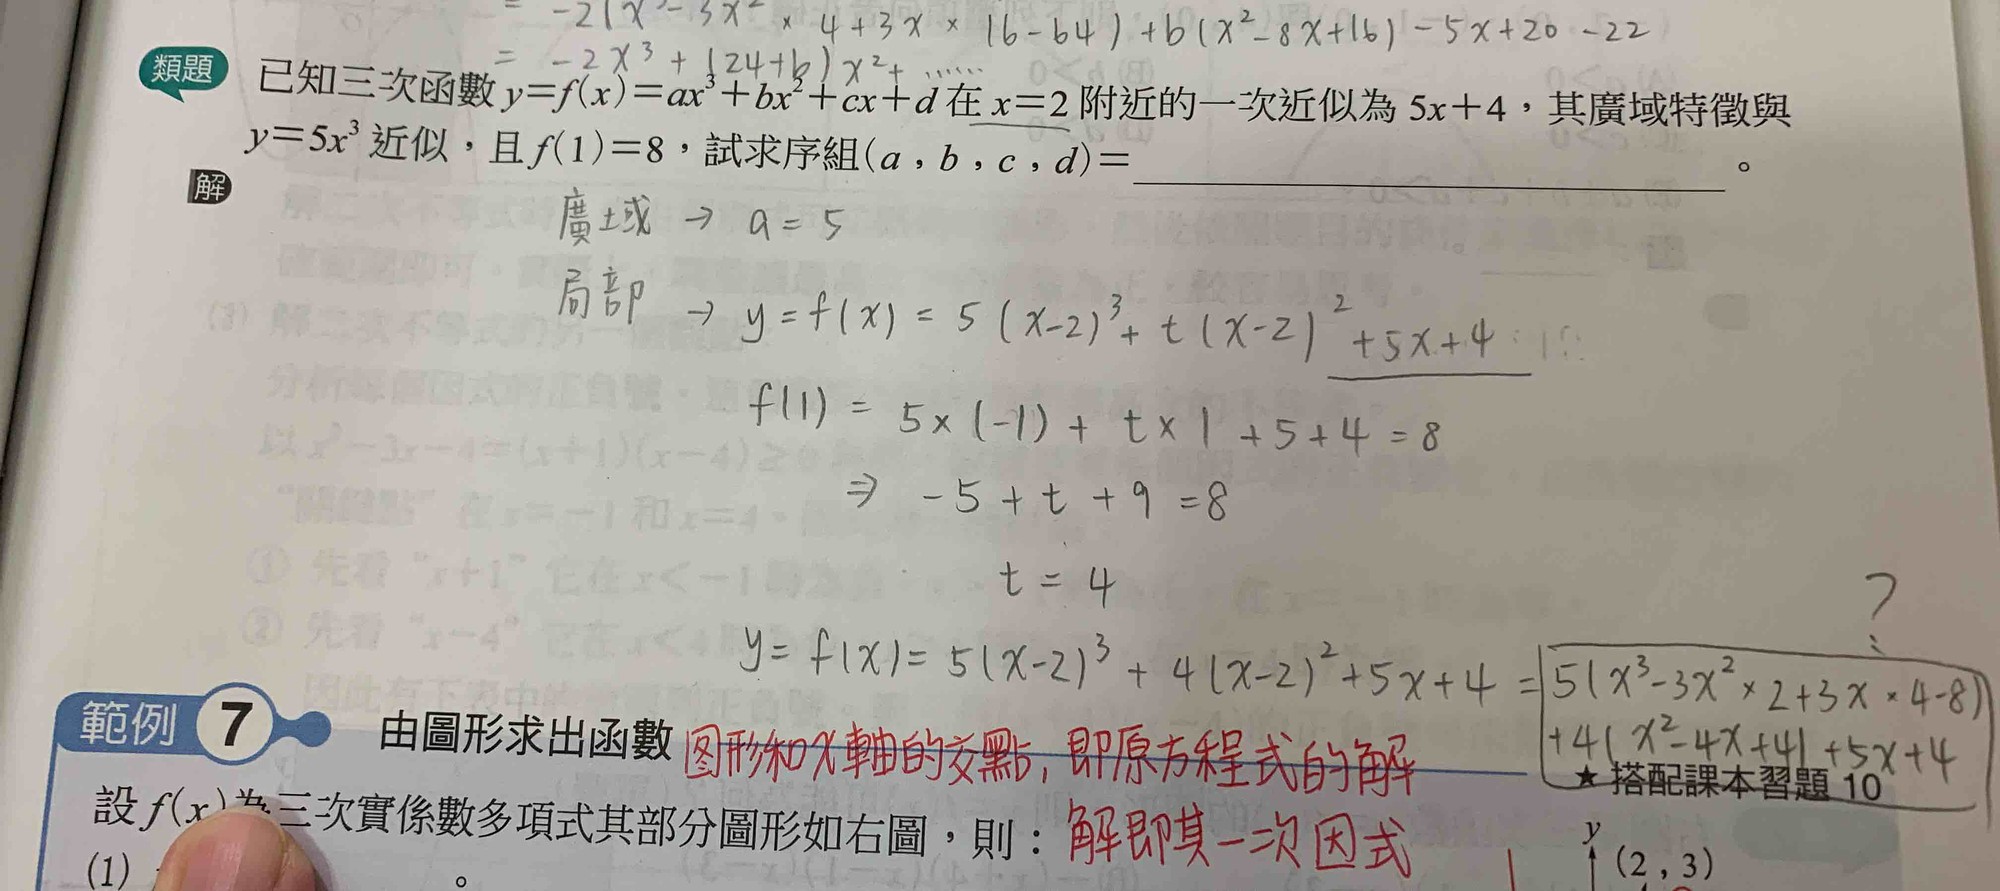 = -2(x³-3x²×4+3x×16-64)+b(x²-8x+16)-5x+20-22
= -2x³+(24+b)x²+……
類題 已知三次函數 y=f(x)=ax³+bx²+cx+d 在 x=2 附近的一次近似為 5x+4,其廣域特徵與
y=5x³ 近似,且 f(1)=8,試求序組(a,b,c,d)=＿＿＿＿＿＿。
解
廣域 → a=5
局部 → y=f(x)=5(x-2)³+t(x-2)²+5x+4
f(1)=5×(-1)+t×1+5+4=8
⇒ -5+t+9=8
t=4
?
y=f(x)=5(x-2)³+4(x-2)²+5x+4=5(x³-3x²×2+3x×4-8)
+4(x²-4x+4)+5x+4
範例 7 由圖形求出函數 图形和x軸的交點,即原方程式的解
★搭配課本習題 10
設 f(x)為三次實係數多項式其部分圖形如右圖,則: 解即其一次因式
y
(2,3)
(1) 。